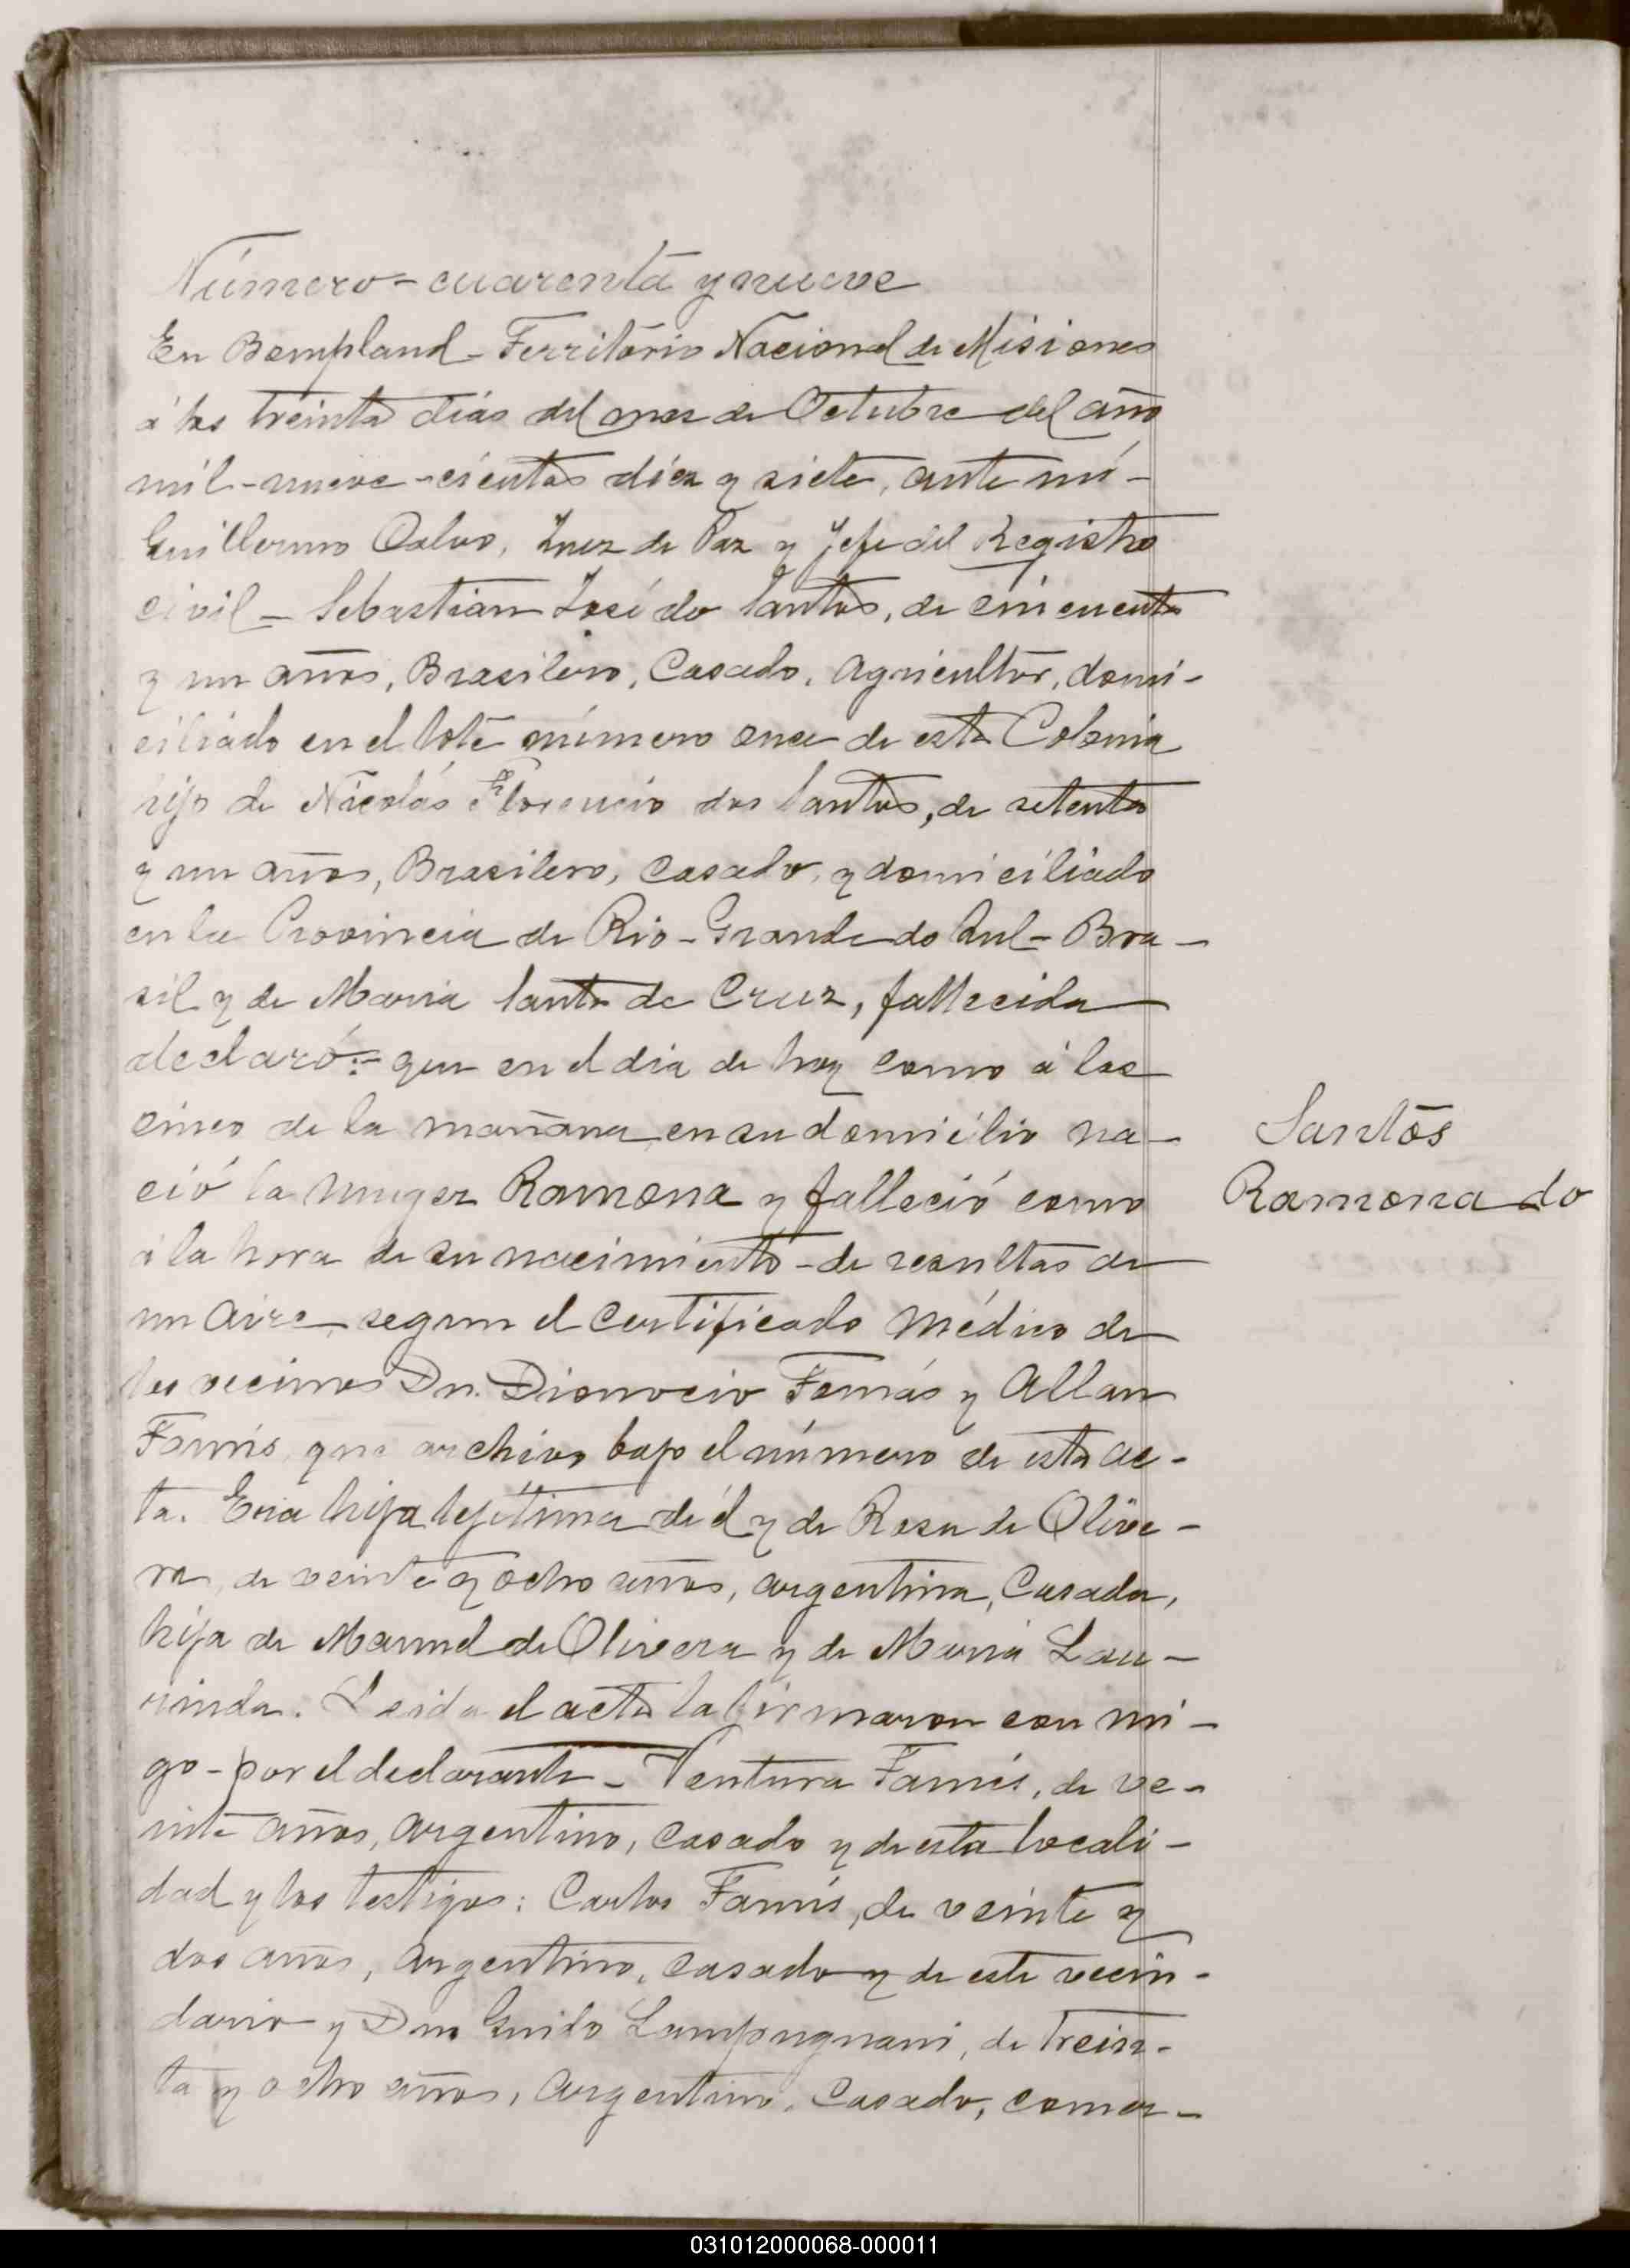 Número - cuarenta y nueve
En Bompland - Territorio Nacional de Misiones
á los treinta dias del mes de Octubre del año
mil - nueve - cientos diez y siete, ante mí -
Guillermo Calvo, Juez de Paz y Jefe del Registro
civil - Sebastian José do Santos, de cincuenta
y un años, Brasilero, Casado, Agricultor, domi-
ciliado en el lote número once de esta Colonia
hijo de Nicolás Florencio dos Santos, de setenta
y un años, Brasilero, casado, y domiciliado
en la Provincia de Rio - Grande do Sul - Bra -
sil y de Maria Santa de Cruz, fallecida
declaró:- que en el dia de hoy como á las
cinco de la mañana en su domicilio na -
ció la muger Ramona y falleció como
á la hora de su nacimiento - de resultas de
un aire segun el certificado médico de
los vecinos Dn. Dionocio y Allan
que archivo bajo el número de esta ac -
ta. Era hija lejítima de él y de Rosa de Olive -
ra, de veinte y ocho años, argentina, Casada,
hija de Manuel de Olivera y de Maria Lau -
rinda. Leida el acta la firmaron con mi -
go - por el declarante - Ventura Famis, de ve -
inte años, argentino, casado y de esta locali -
dad y los testigos: Carlos Famis, de veinte y
dos años, argentino, casado y de este vecin -
dario y Dn Guido Lampugnani, de trein -
ta y ocho años, argentino, casado, comer -
Santos
Ramona do
031012000068-000011